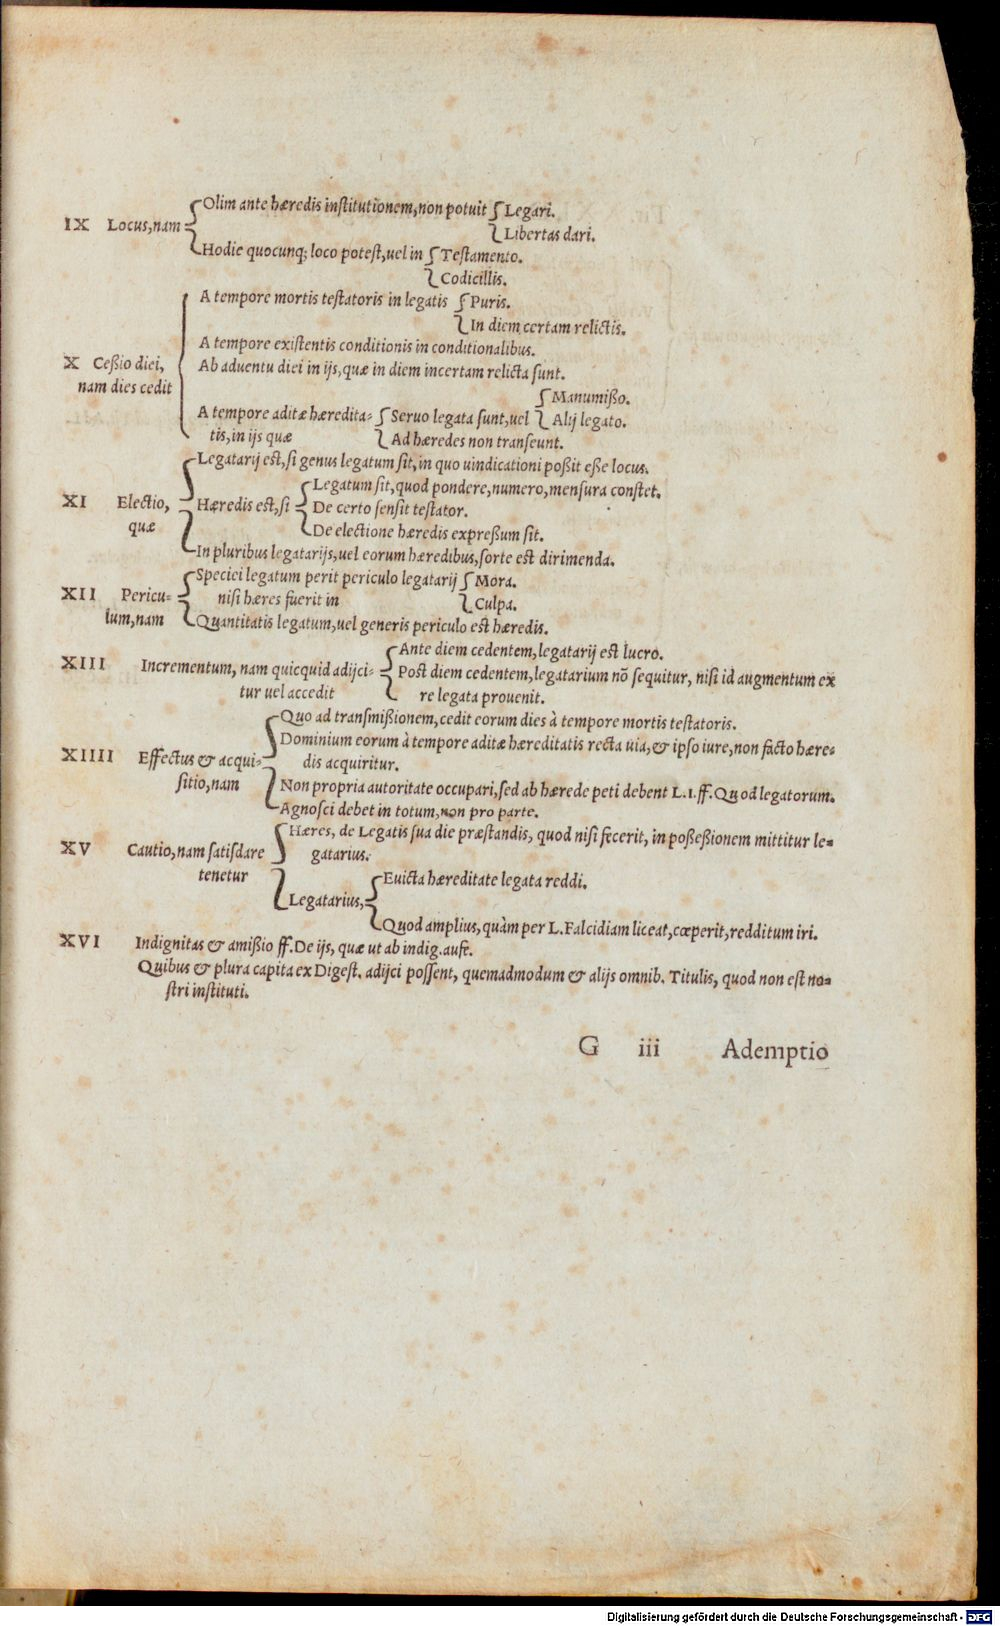 Olim ante hæredis institutionem, non potuit Legari.
IX Locus, nam
Libertas dari.
Hodie quocunq; loco potest, uel in Testamento.
Codicillis.
A tempore mortis testatoris in legatis Puris.
In diem certam relictis.
A tempore existentis conditionis in conditionalibus.
X Ceßio diei,
Ab aduentu diei in ijs, quæ in diem incertam relicta sunt.
nam dies cedit
Manumißo.
A tempore aditæ hæredita- Seruo legata sunt, uel Alij legato.
tis, in ijs quæ Ad hæredes non transeunt.
Legatarij est, si genus legatum sit, in quo uindicationi poßit eße locus.
Legatum sit, quod pondere, numero, mensura constet.
XI Electio, Hæredis est, si De certo sensit testator.
quæ De electione hæredis expreßum sit.
In pluribus legatarijs, uel eorum hæredibus, sorte est dirimenda.
Speciei legatum perit periculo legatarij Mora.
XII Pericu- nisi hæres fuerit in Culpa.
lum, nam Quantitatis legatum, uel generis periculo est hæredis.
Ante diem cedentem, legatarij est lucro.
XIII Incrementum, nam quicquid adijci- Post diem cedentem, legatarium nõ sequitur, nisi id augmentum ex
tur uel accedit re legata prouenit.
Quo ad transmißionem, cedit eorum dies à tempore mortis testatoris.
Dominium eorum à tempore aditæ hæreditatis recta uia, & ipso iure, non facto hære-
XIIII Effectus & acqui- dis acquiritur.
sitio, nam Non propria autoritate occupari, sed ab hærede peti debent L.1.ff. Quod legatorum.
Agnosci debet in totum, non pro parte.
Hæres, de Legatis sua die præstandis, quod nisi fecerit, in poßeßionem mittitur le-
XV Cautio, nam satisdare gatarius.
tenetur Euicta hæreditate legata reddi.
Legatarius,
Quod amplius, quàm per L. Falcidiam liceat, cœperit, redditum iri.
XVI Indignitas & amißio ff. De ijs, quæ ut ab indig. aufe.
Quibus & plura capita ex Digest. adijci possent, quemadmodum & alijs omnib. Titulis, quod non est no-
stri instituti.
G iii Ademptio
Digitalisierung gefördert durch die Deutsche Forschungsgemeinschaft - DFG